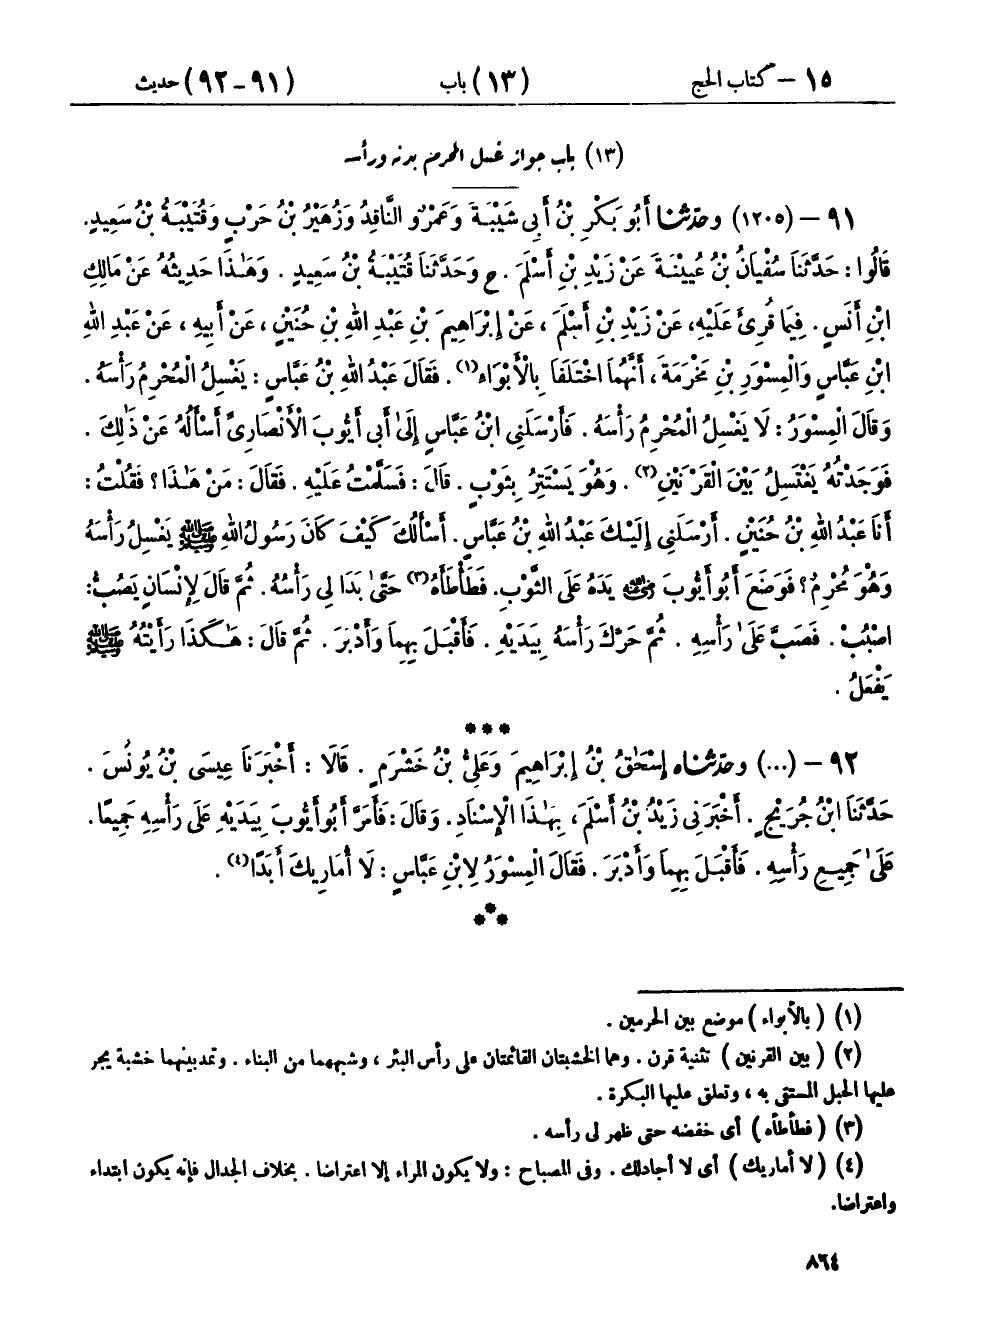 ١٥ – كتاب الحج (١٣) باب (٩١-٩٢) حديث
(١٣) باب جواز غسل المحرم بدنه ورأسه
٩١ – (١٢٠٥) وحدّثنا أَبُو بَكْرِ بْنُ أَبِي شَيْبَةَ وَعَمْرٌو النَّاقِدُ وَزُهَيْرُ بْنُ حَرْبٍ وَقُتَيْبَةُ بْنُ سَعِيدٍ.
قَالُوا : حَدَّثَنَا سُفْيَانُ بْنُ عُيَيْنَةَ عَنْ زَيْدِ بْنِ أَسْلَمَ . ح وَحَدَّثَنَا قُتَيْبَةُ بْنُ سَعِيدٍ . وَهَٰذَا حَدِيثُهُ عَنْ مَالِكِ
ابْنِ أَنَسٍ . فِيمَا قُرِئَ عَلَيْهِ، عَنْ زَيْدِ بْنِ أَسْلَمَ ، عَنْ إِبْرَاهِيمَ بْنِ عَبْدِ اللهِ بْنِ حُنَيْنٍ ، عَنْ أَبِيهِ ، عَنْ عَبْدِ اللهِ
ابْنِ عَبَّاسٍ وَالْمِسْوَرِ بْنِ مَخْرَمَةَ ، أَنَّهُمَا اخْتَلَفَا بِالْأَبْوَاءِ(١) . فَقَالَ عَبْدُ اللهِ بْنُ عَبَّاسٍ : يَغْسِلُ الْمُحْرِمُ رَأْسَهُ .
وَقَالَ الْمِسْوَرُ : لَا يَغْسِلُ الْمُحْرِمُ رَأْسَهُ . فَأَرْسَلَنِي ابْنُ عَبَّاسٍ إِلَىٰ أَبِي أَيُّوبَ الْأَنْصَارِىِّ أَسْأَلُهُ عَنْ ذَٰلِكَ .
فَوَجَدْتُهُ يَغْتَسِلُ بَيْنَ الْقَرْنَيْنِ(٢) . وَهُوَ يَسْتَتِرُ بِثَوْبٍ . قَالَ : فَسَلَّمْتُ عَلَيْهِ . فَقَالَ : مَنْ هَٰذَا ؟ فَقُلْتُ :
أَنَا عَبْدُ اللهِ بْنُ حُنَيْنٍ . أَرْسَلَنِي إِلَيْكَ عَبْدُ اللهِ بْنُ عَبَّاسٍ . أَسْأَلُكَ كَيْفَ كَانَ رَسُولُ اللهِ ﷺ يَغْسِلُ رَأْسَهُ
وَهُوَ مُحْرِمٌ ؟ فَوَضَعَ أَبُو أَيُّوبَ رضي الله عنه يَدَهُ عَلَى الثَّوْبِ. فَطَأْطَأَهُ(٣) حَتَّىٰ بَدَا لِي رَأْسُهُ . ثُمَّ قَالَ لِإِنْسَانٍ يَصُبُّ:
اصْبُبْ . فَصَبَّ عَلَىٰ رَأْسِهِ . ثُمَّ حَرَّكَ رَأْسَهُ بِيَدَيْهِ . فَأَقْبَلَ بِهِمَا وَأَدْبَرَ . ثُمَّ قَالَ : هَٰكَذَا رَأَيْتُهُ ﷺ
يَفْعَلُ .
***
٩٢ – (...) وحدّثناه إِسْحَٰقُ بْنُ إِبْرَاهِيمَ وَعَلِيُّ بْنُ خَشْرَمٍ . قَالَا : أَخْبَرَنَا عِيسَى بْنُ يُونُسَ .
حَدَّثَنَا ابْنُ جُرَيْجٍ . أَخْبَرَنِي زَيْدُ بْنُ أَسْلَمَ ، بِهَٰذَا الْإِسْنَادِ . وَقَالَ : فَأَمَرَّ أَبُو أَيُّوبَ بِيَدَيْهِ عَلَى رَأْسِهِ جَمِيعًا .
عَلَىٰ جَمِيعِ رَأْسِهِ . فَأَقْبَلَ بِهِمَا وَأَدْبَرَ . فَقَالَ الْمِسْوَرُ لِابْنِ عَبَّاسٍ : لَا أُمَارِيكَ أَبَدًا(٤) .
***
(١) ( بالأبواء ) موضع بين الحرمين .
(٢) ( بين القرنين ) تثنية قرن . وهما الخشبتان القائمتان على رأس البئر ، وشبههما من البناء . وتمد بينهما خشبة يجر
عليها الحبل المستقى به ، وتعلق عليها البكرة .
(٣) ( فطأطأه ) أى خفضه حتى ظهر لى رأسه .
(٤) ( لا أماريك ) أى لا أجادلك . وفى المصباح : ولا يكون المراء إلا اعتراضا . بخلاف الجدال فإنه يكون ابتداء
واعتراضا.
٨٦٤